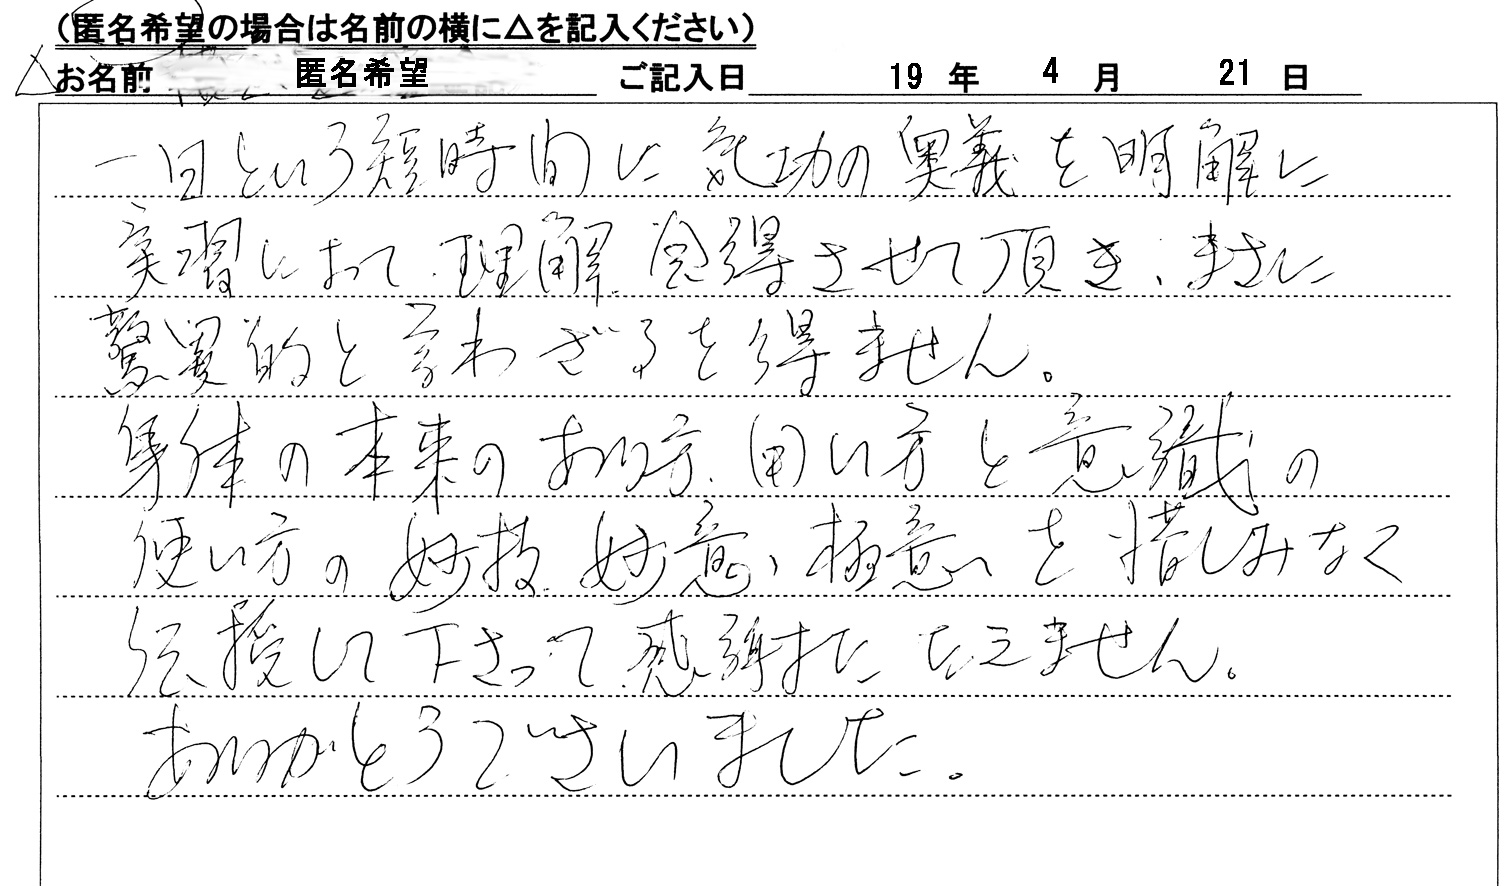 (匿名希望の場合は名前の横に△を記入ください)
△お名前 匿名希望 ご記入日 19 年 4 月 21 日
一日という短時間に気功の奥義を明解に
実習において理解、会得させて頂き、まさに
驚異的と言わざるを得ません。
身体の本来のあり方、用い方と意識の
使い方の妙技、妙意、極意を惜しみなく
伝授して下さって感謝にたえません。
ありがとうございました。